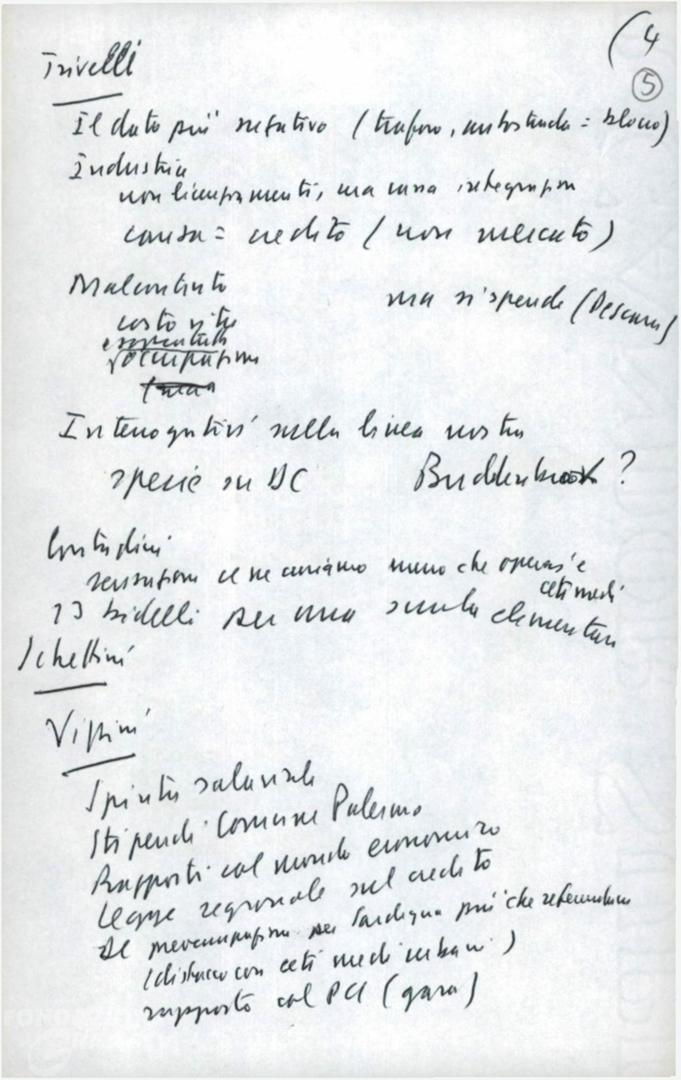 (4
5
Trivelli
Il dato più negativo (traforo, autostrada = blocco)
Industria
non licenziamenti, ma cassa integrazion
causa = credito (non mercato)
Malcontento
costo vita
ma si spende (Pescara)
occupazione
Interrogativi sulla linea nostra
specie su DC
Buddenbrook ?
Contadini
sensazione ce ne curiamo meno che operai e
ceti medi
13 bidelli per una scuola elementare
Ichettini
Vizzini
Spinta salariale
Stipendi Comune Palermo
Rapporti col mondo economico
Legge regionale sul credito
preoccupazione per Sardegna più che referendum
(distacco con ceti medi urbani)
rapporto col PCI (gara)